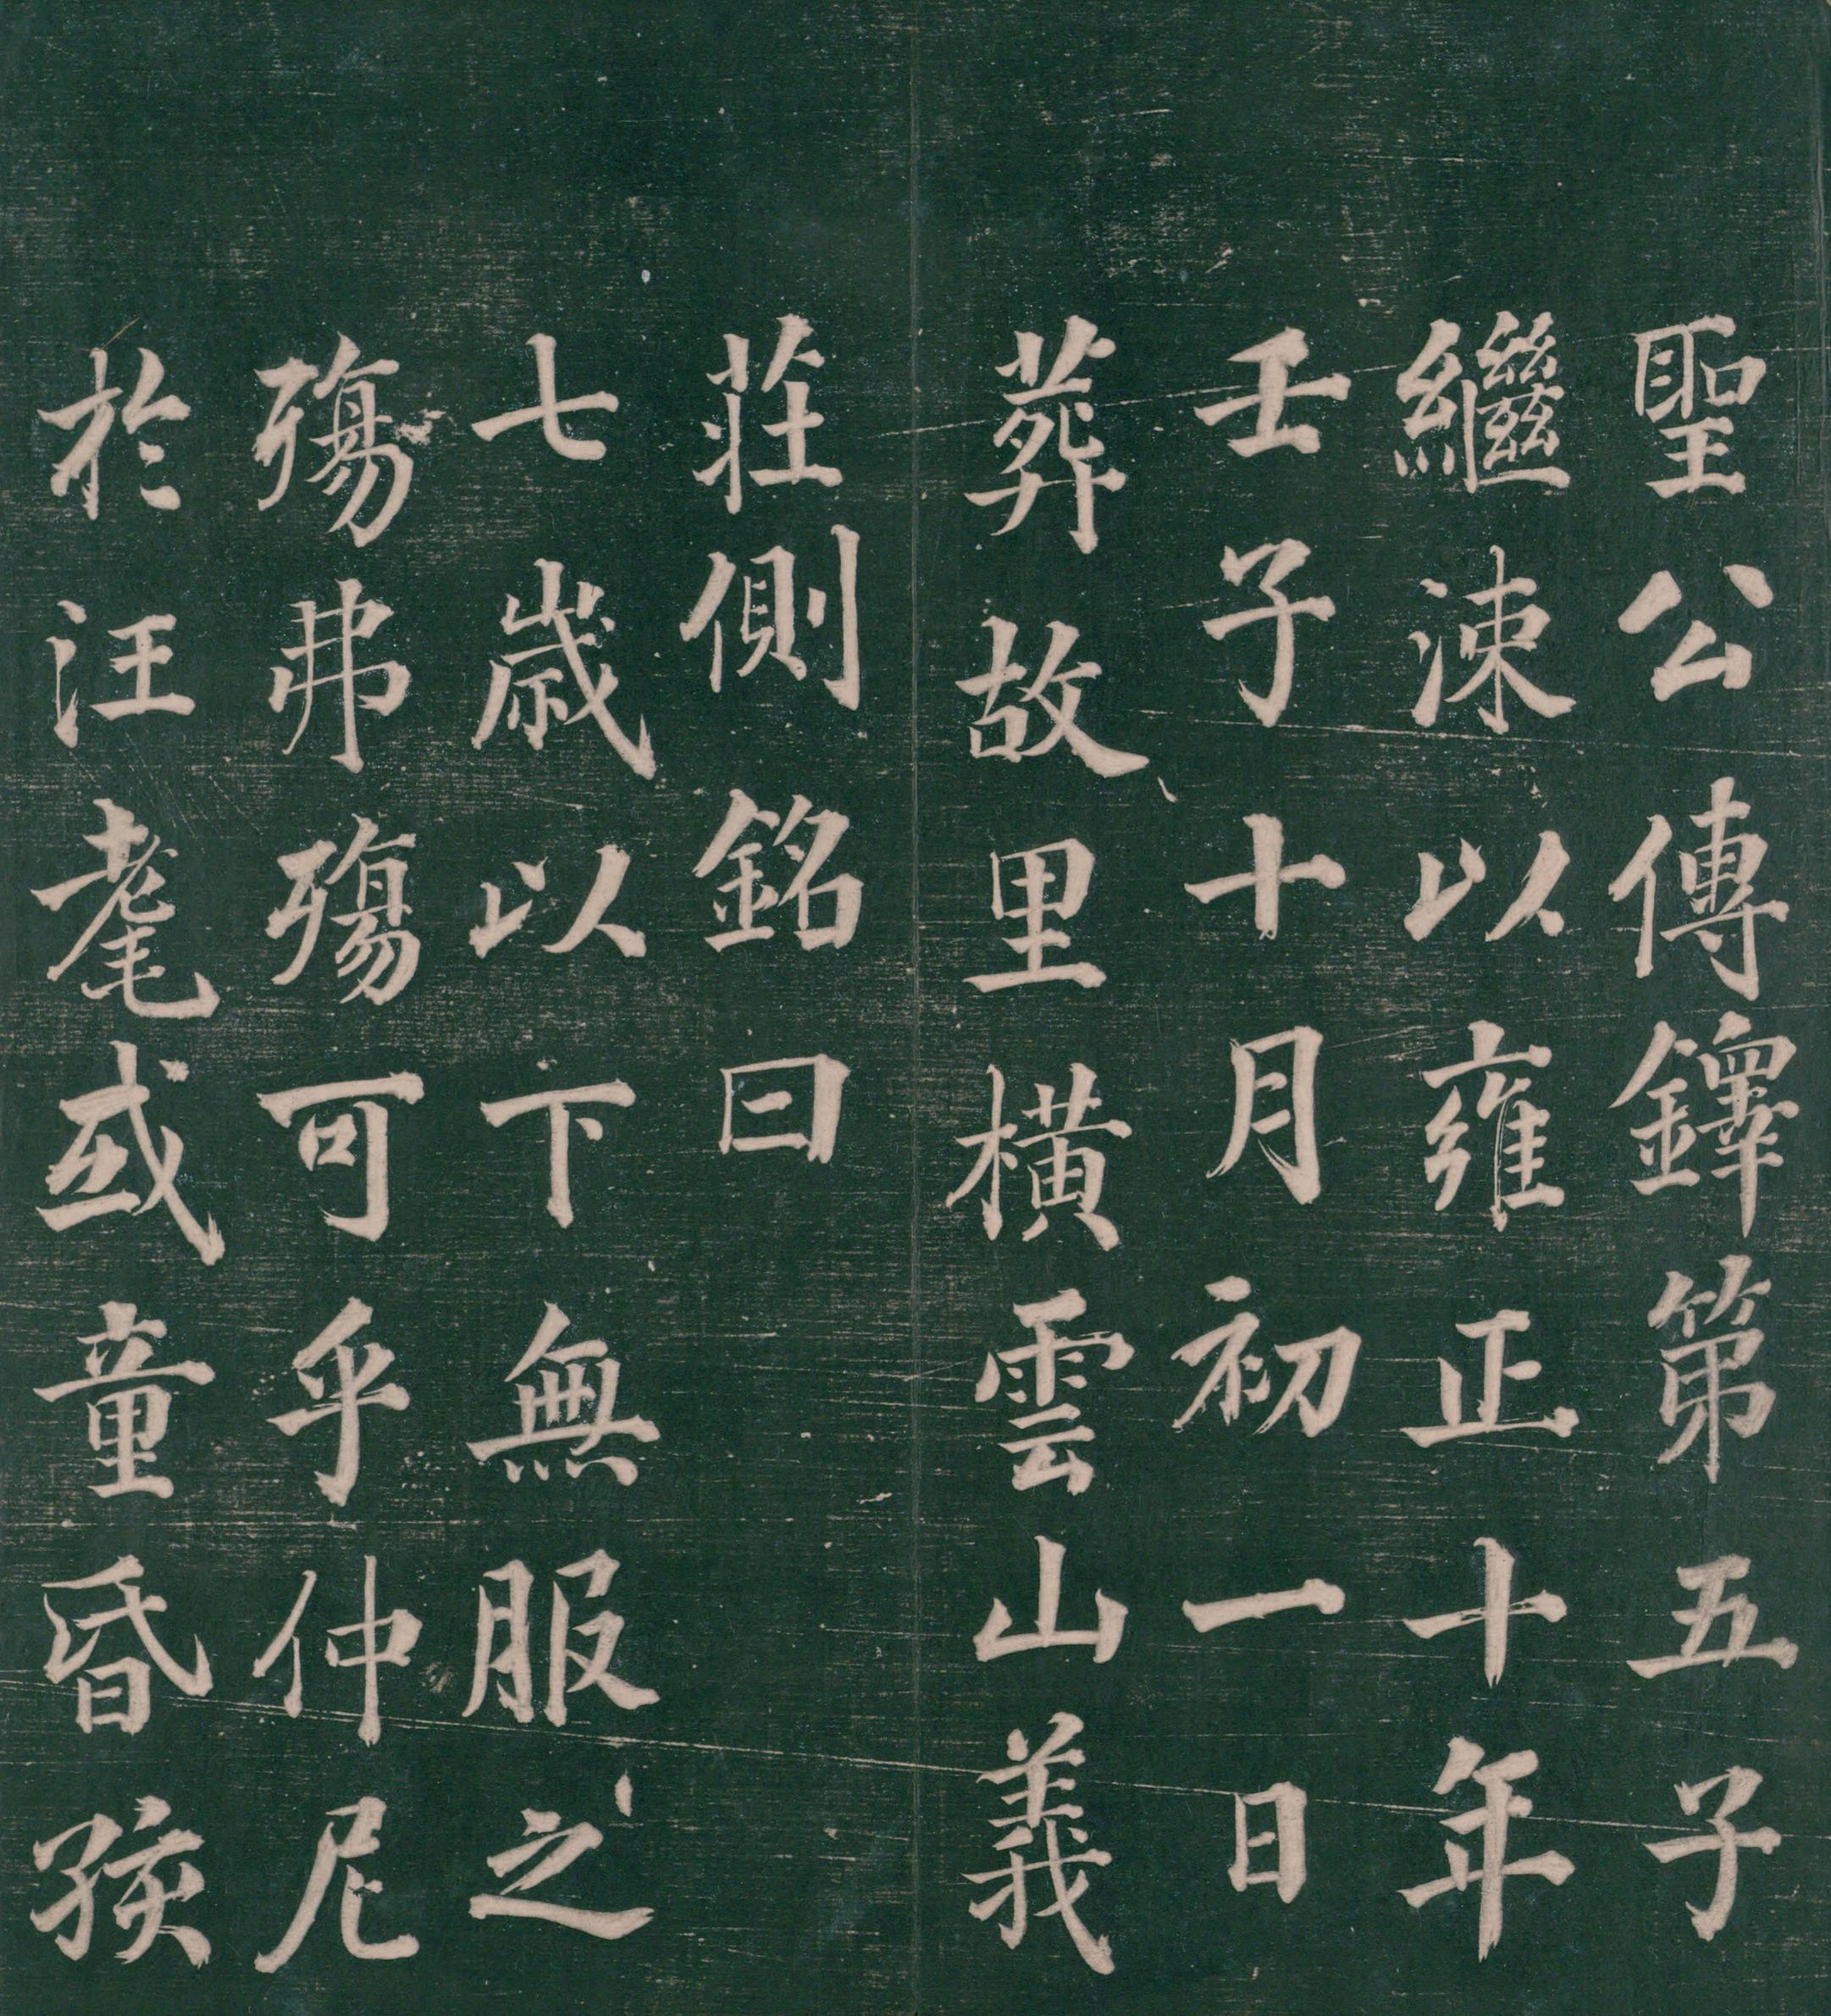 聖公傳鐸第五子
繼涑以雍正十年
壬子十月初一日
葬故里橫雲山義
莊側銘曰
七歲以下無服之
殤弗殤可乎仲尼
於汪耄或童昏孩